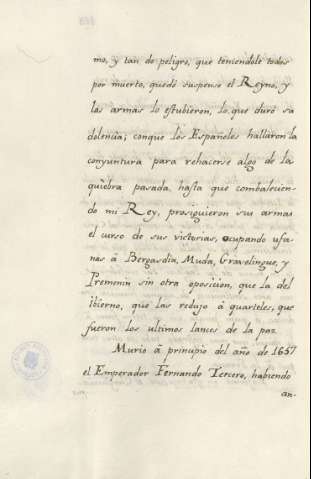 mo, y tan de peligro, que teniendole todos
por muerto, quedó suspenso el Reyno, y
las armas lo estubieron, lo que duró su
dolencia; conque los Españoles hallaron la
conyuntura para rehacerse algo de la
quiebra pasada, hasta que combalecien-
do mi Rey, prosiguieron sus armas
el curso de sus victorias, ocupando ufa-
nas á Bergas, Muda, Gravelingue, y
sin otra oposicion, que la del
ibierno, que las redujo á quarteles, que
fueron los ultimos lances de la paz.
Murio á principio del año de 1657
el Emperador Fernando Tercero, habiendo
an-